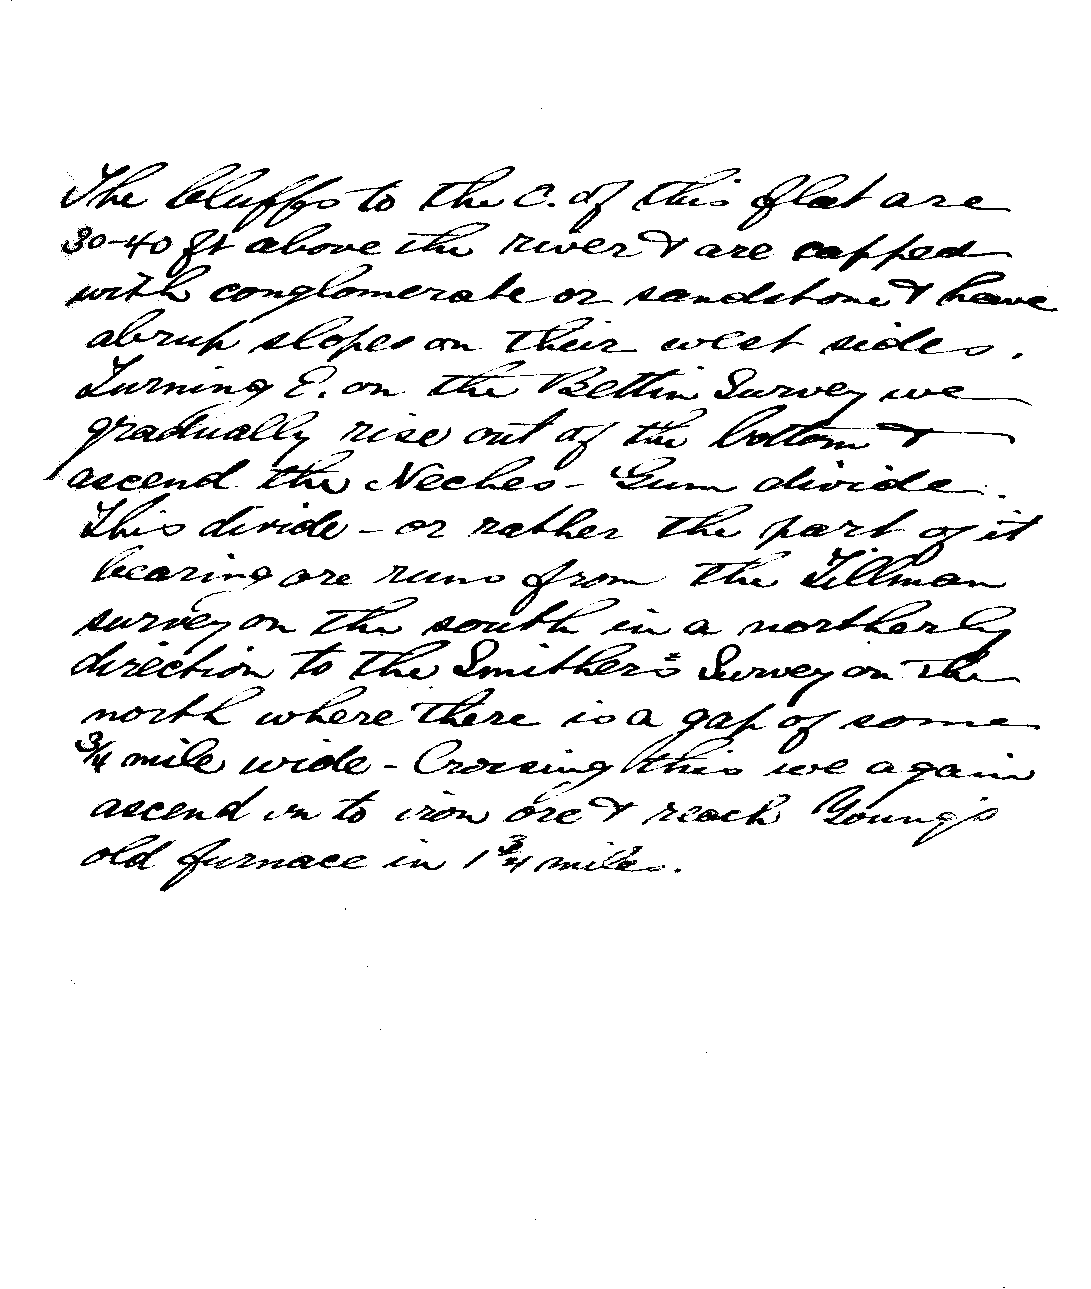 The bluffs to the E. of this flat are
30-40 ft above the river & are capped
with conglomerate or sandstone & have
abrup slopes on their west sides.
Turning E. on the Bettin Survey we
gradually rise out of the bottom &
ascend the Neches - Gum divide.
This divide - or rather the part of it
bearing ore runs from the Tillman
survey on the south in a northerly
direction to the Smither's Survey on the
north where there is a gap of some
3/4 mile wide - Crossing this we again
ascend on to iron ore & reach Young's
old furnace in 1 3/4 miles.